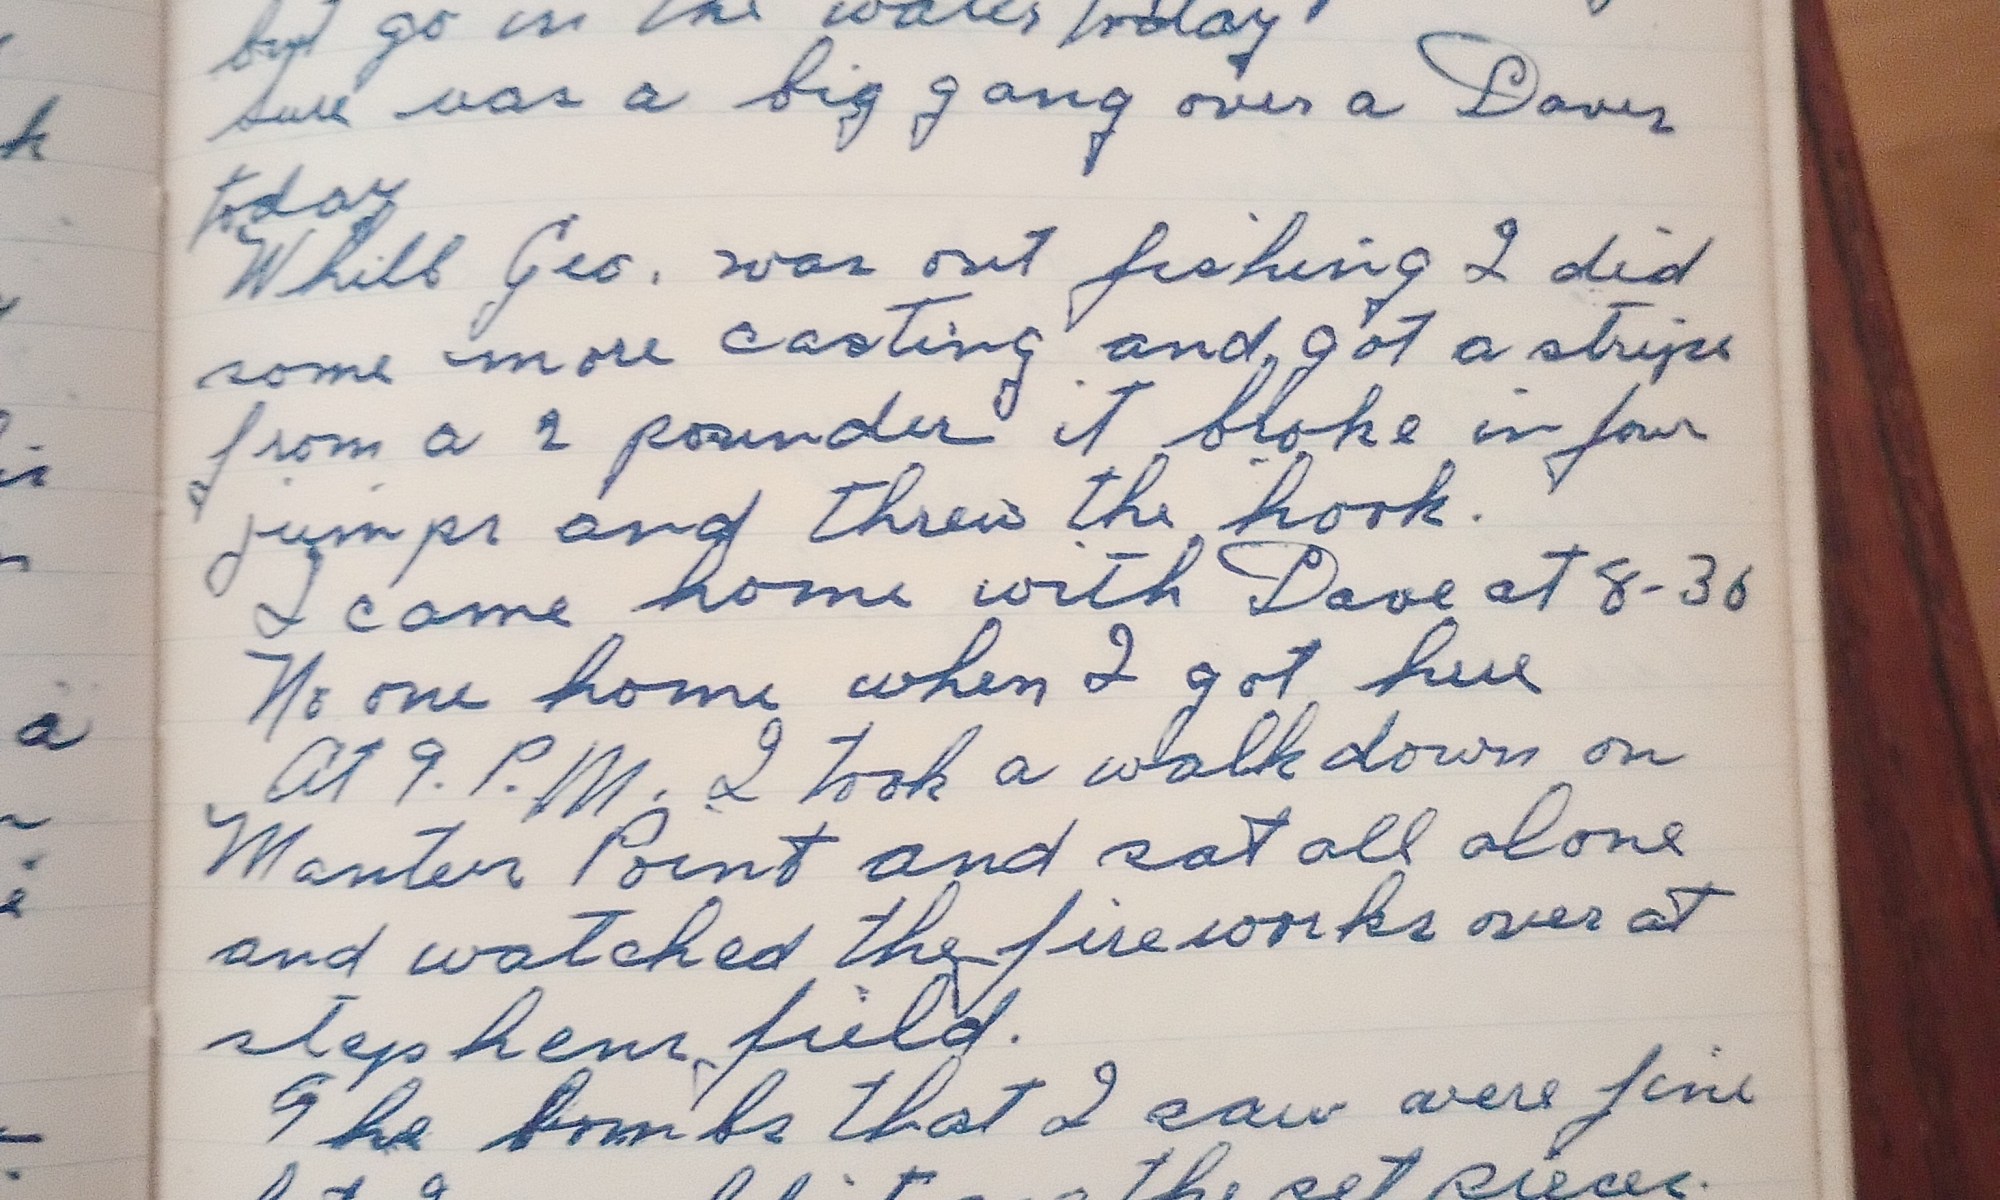 but go in the water today
sure was a big gang over a Daves
today
Whill Geo. was out fishing I did
some more casting and got a stripe
from a 2 pounder it broke in four
jumps and threw the hook.
I came home with Dave at 8-30
No one home when I got here
At 9. P.M. I took a walk down on
Manters Point and sat all alone
and watched the fireworks over at
stephens field.
The bombs that I saw were fine
the set pieces.